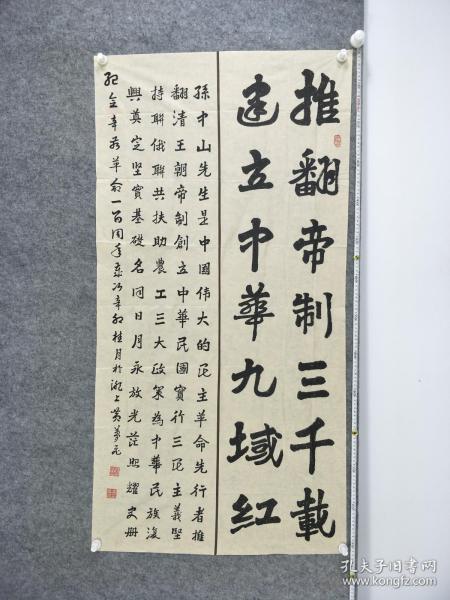 推翻帝制三千載
建立中華九域紅
孫中山先生是中國偉大的民主革命先行者推
翻清王朝帝制創立中華民國實行三民主義堅
持聯俄聯共扶助農工三大政策為中華民族復
興奠定堅實基礎名同日月永放光芒照耀史冊
紀念辛亥革命一百周年歲次辛卯桂月於滬上黃
孔夫子旧书网
book.kongfz.com